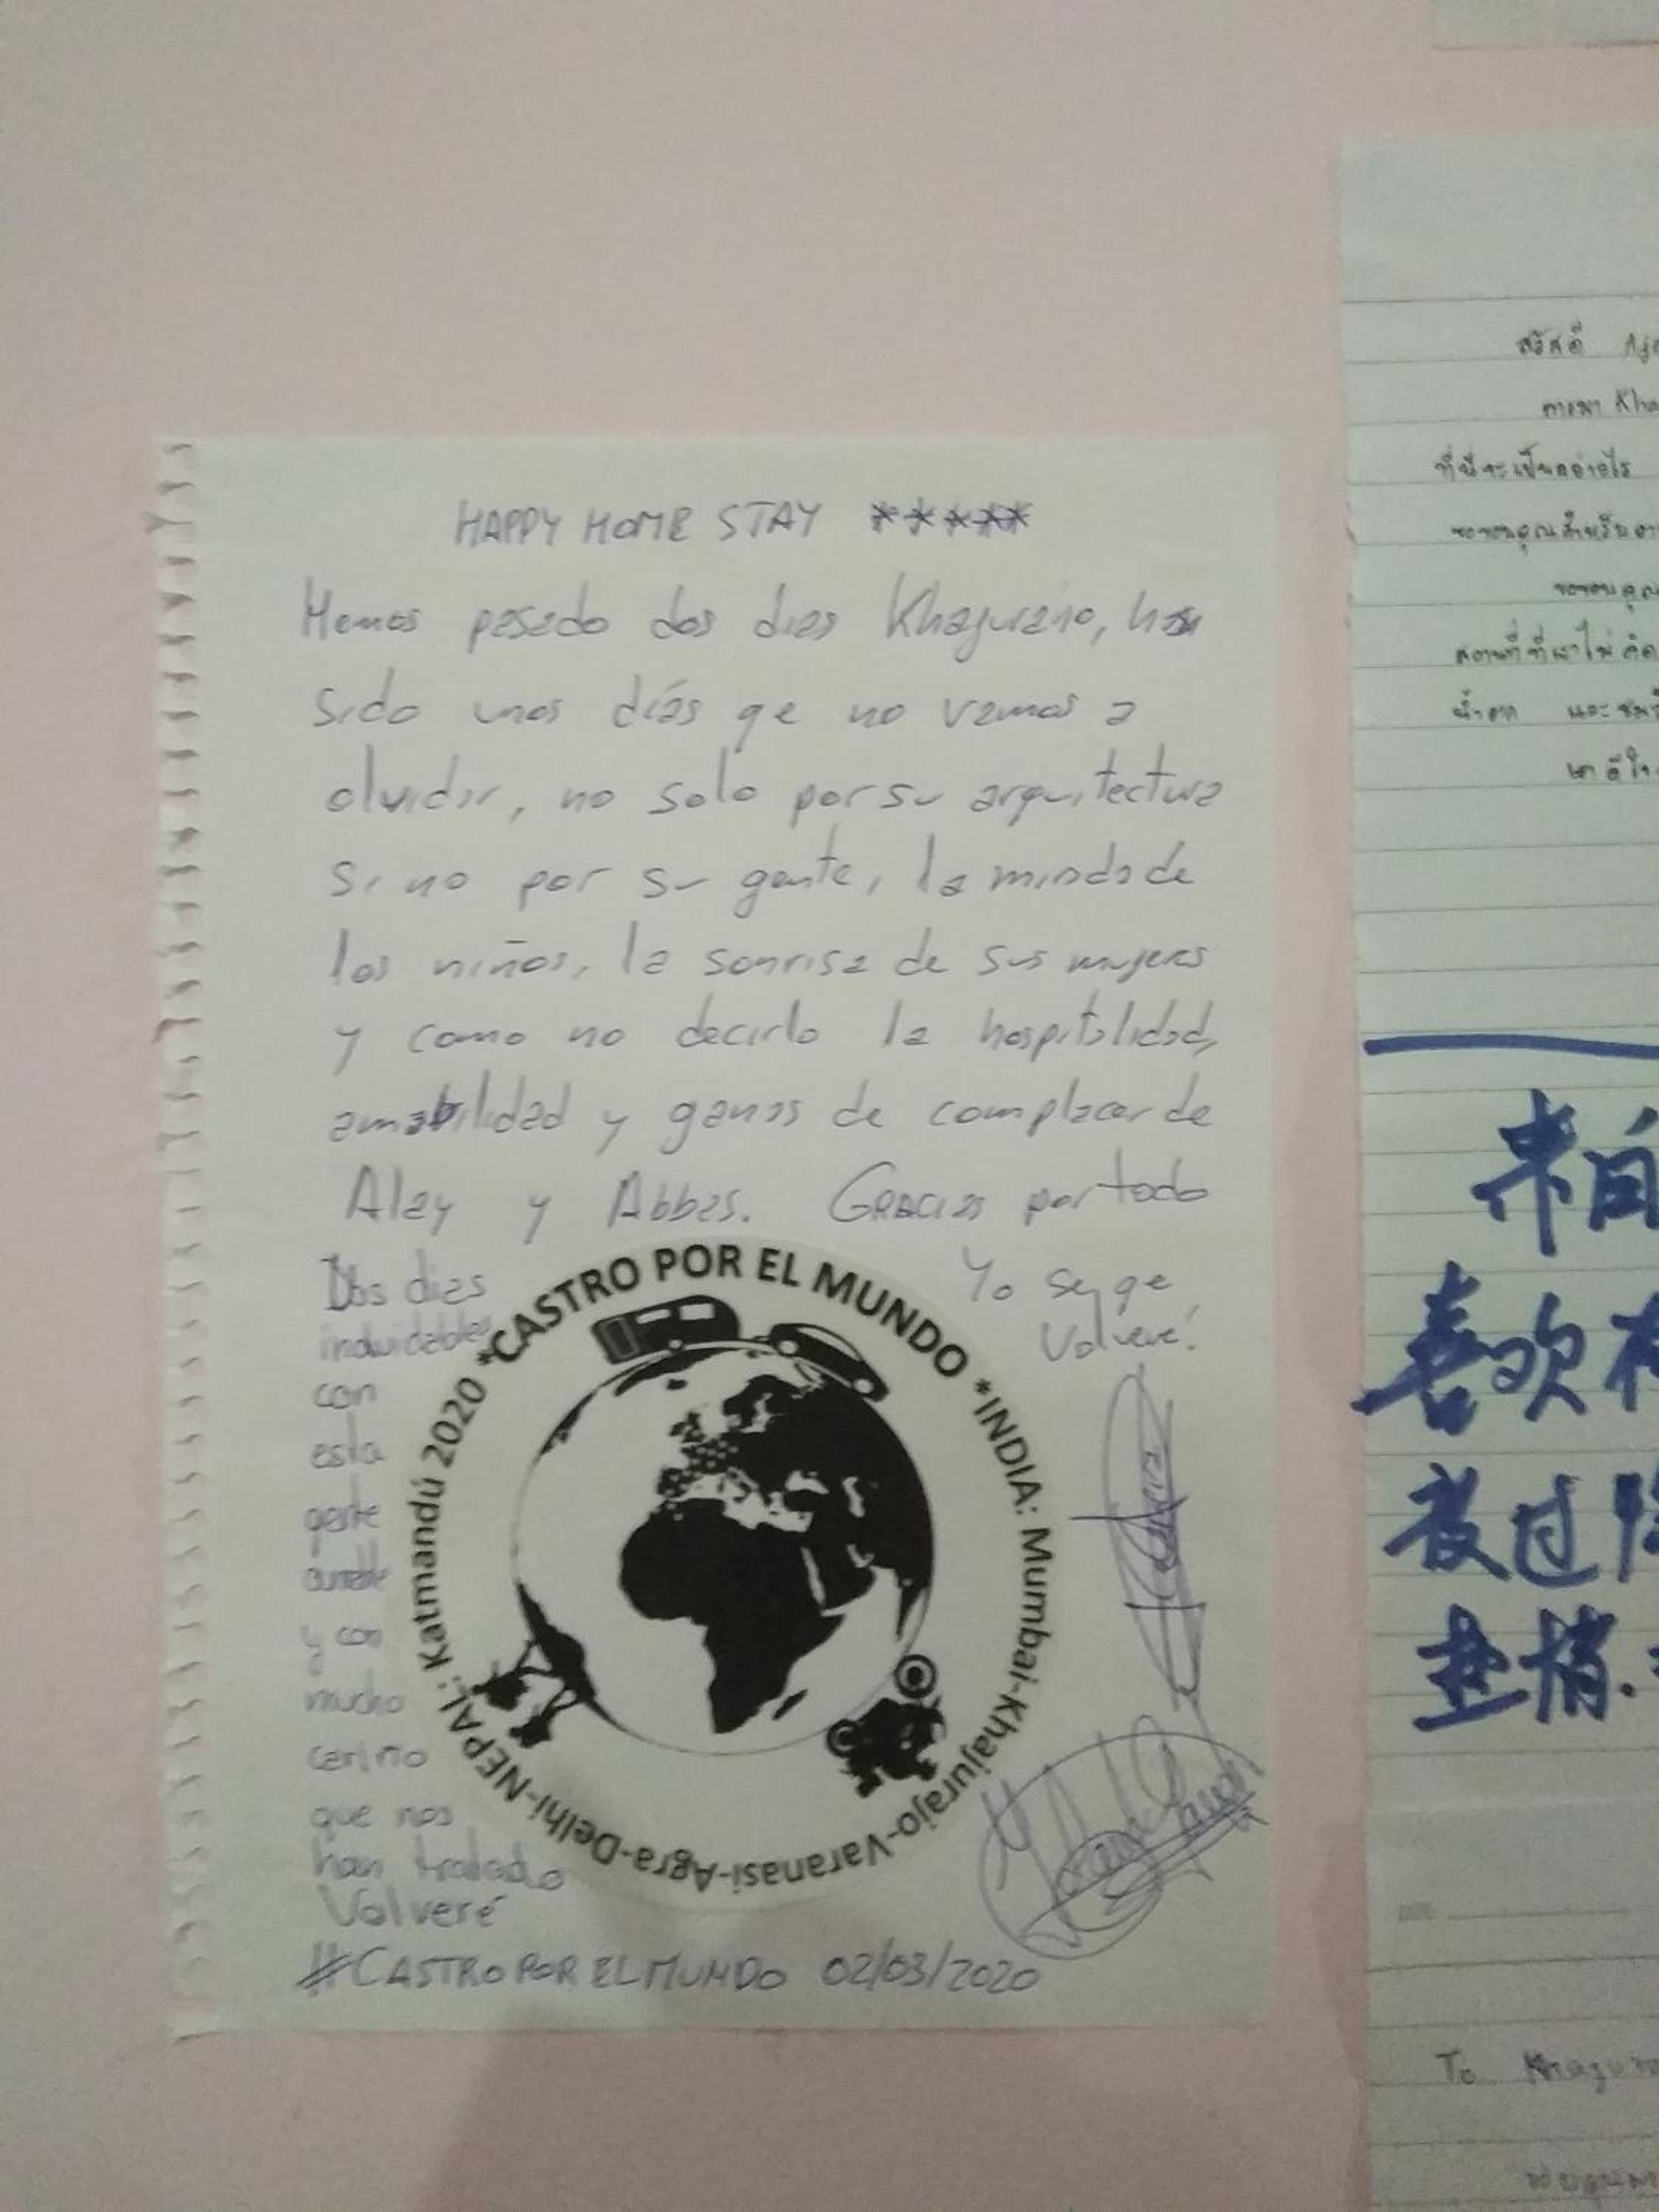 HAPPY HOME STAY *****
Hemos pasado dos dias Khajuraho, han
sido unos días qe no vamos a
olvidar, no solo por su arquitectura
si no por su gente, la mirada de
los niños, la sonrisa de sus mujeres
y como no decirlo la hospitalidad,
amabilidad y ganas de complacer de
Alay y Abbas. GRACIAS por todo
Dos dias
inolvidables
con
esta
gente
amable
y con
mucho
cariño
que nos
han tratado
Volveré
Yo se qe
Volveré!
*CASTRO POR EL MUNDO *INDIA: Mumbai-Khajurajo-Varanasi-Agra-Delhi-NEPAL: Katmandú 2020
#CASTRO POR EL MUNDO 02/03/2020
สวัสดี
Kha
ที่นี่จะเป็นอย่างไร
ขอขอบคุณสำหรับ
ขอขอบคุณ
สถานที่ที่เราไม่คิด
และ
来自
喜欢
度过
To Khajura